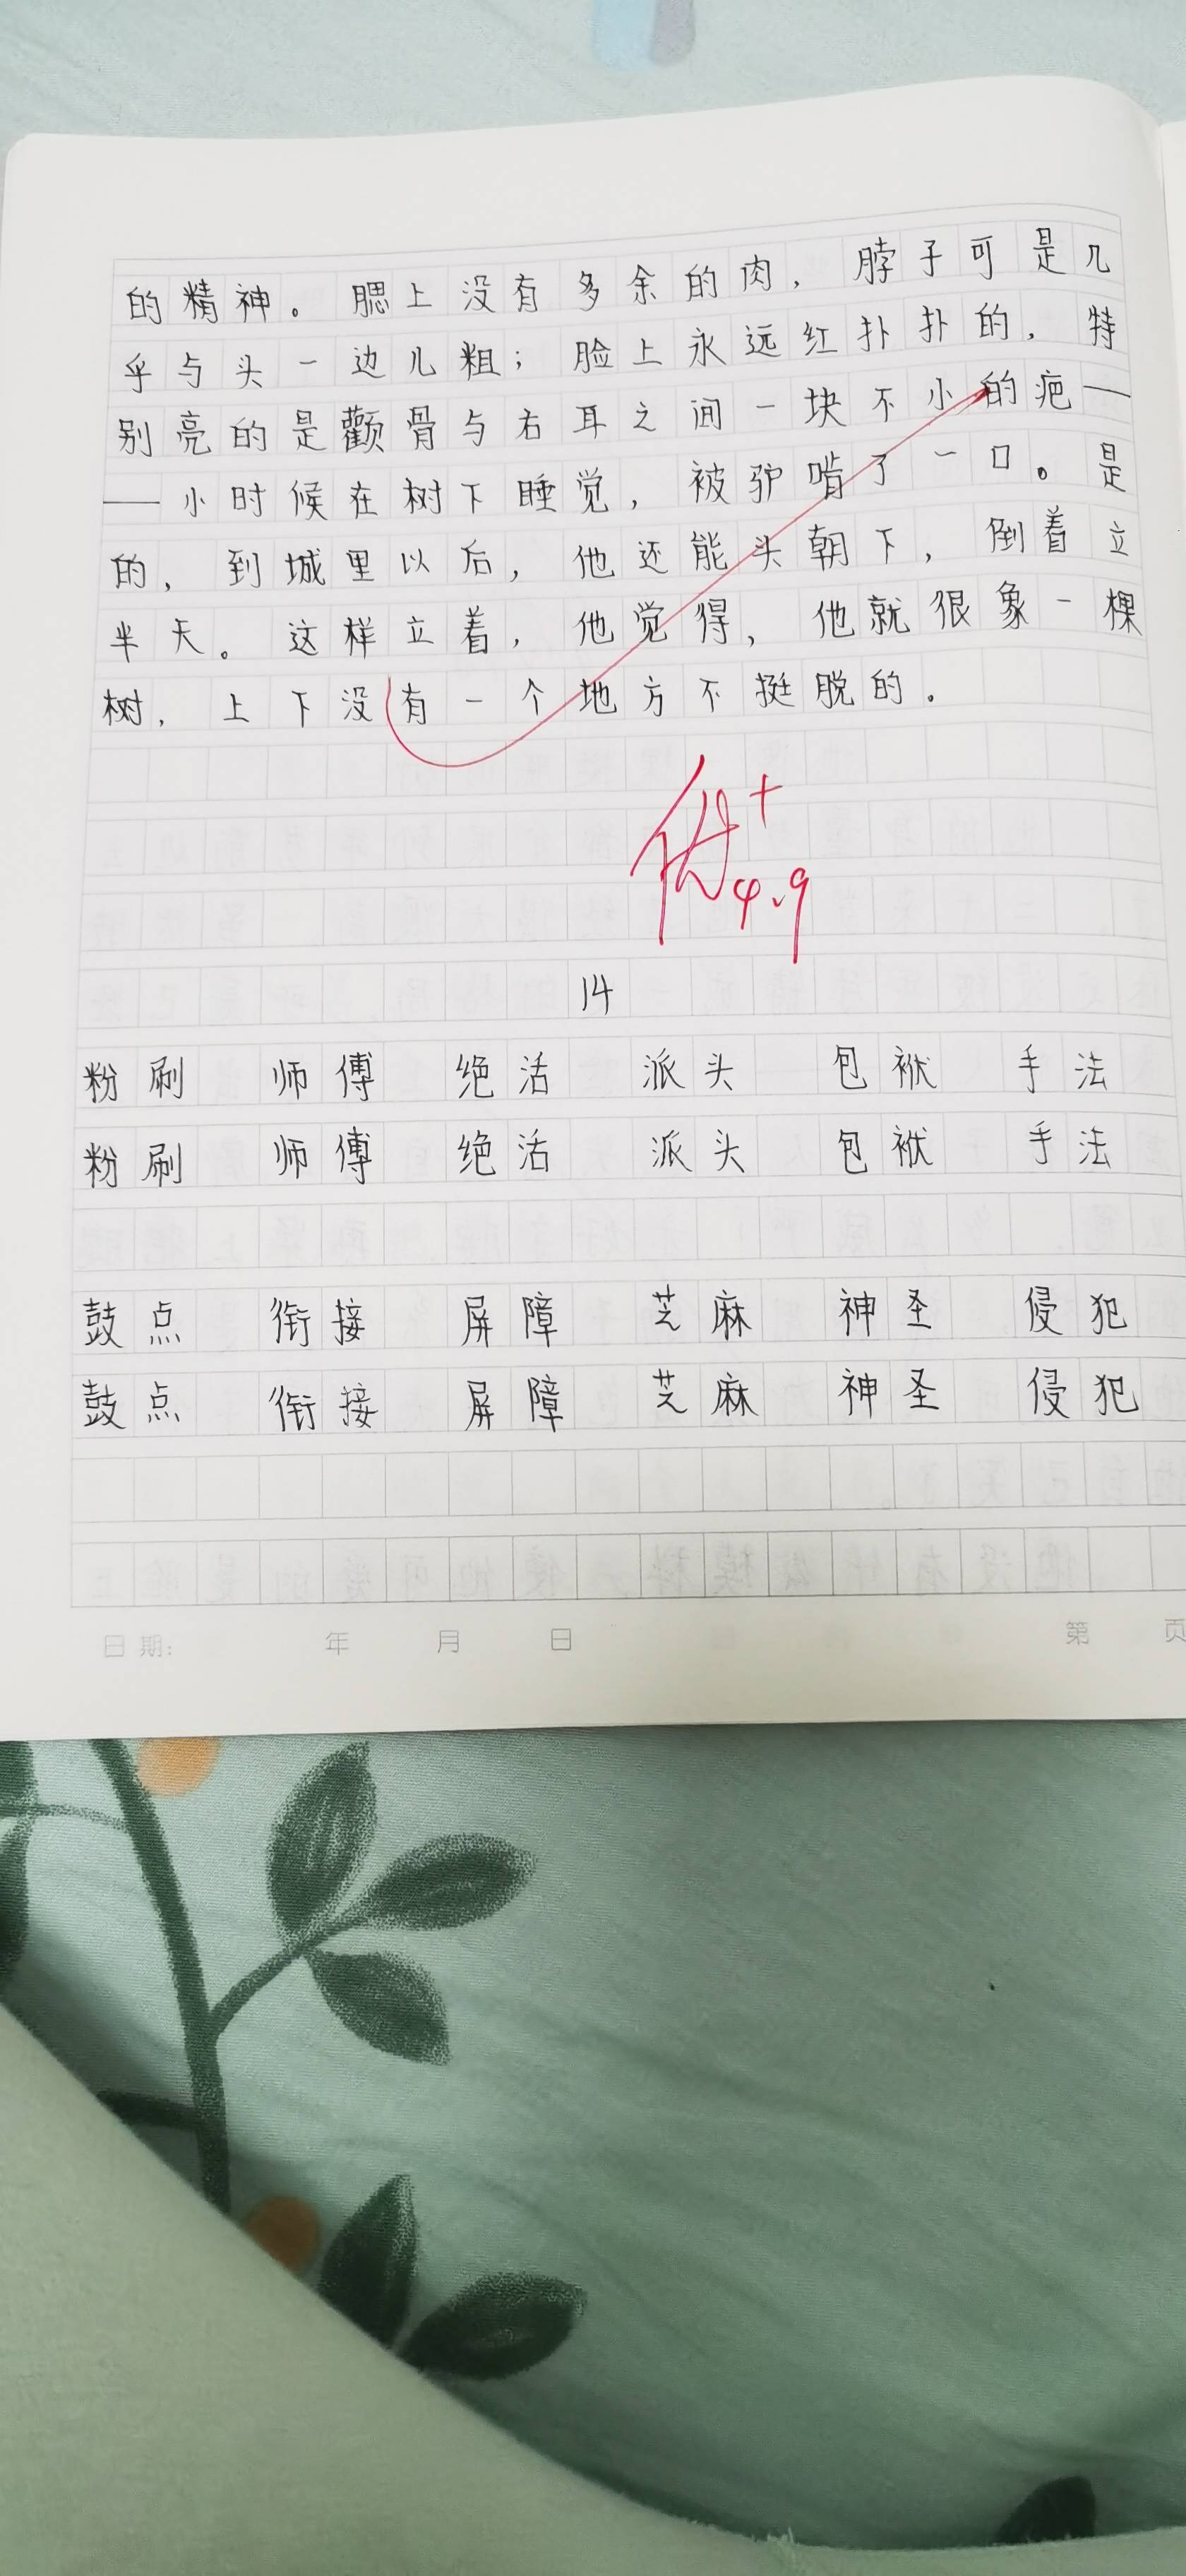 的精神。腮上没有多余的肉，脖子可是几
乎与头一边儿粗；脸上永远红扑扑的，特
别亮的是颧骨与右耳之间一块不小的疤—
—小时候在树下睡觉，被驴啃了一口。是
的，到城里以后，他还能头朝下，倒着立
半天。这样立着，他觉得，他就很象一棵
树，上下没有一个地方不挺脱的。
优+
4.9
14
粉刷 师傅 绝活 派头 包袱 手法
粉刷 师傅 绝活 派头 包袱 手法
鼓点 衔接 屏障 芝麻 神圣 侵犯
鼓点 衔接 屏障 芝麻 神圣 侵犯
日期： 年 月 日 第 页